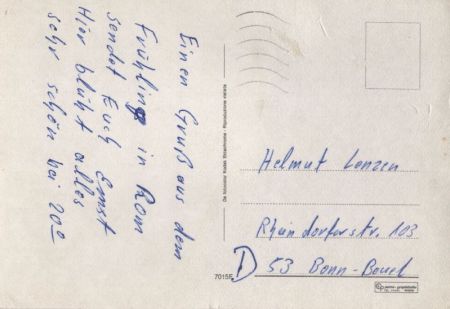 Einen Gruß aus dem
Frühling in Rom
sendet Euch Ernst
Hier blüht alles
sehr schön bei 20°
Da fotocolor Kodak Ektachrome - Riproduzione vietata
7015F
Helmut Lenzen
Rheindorferstr. 103
D 53 Bonn-Beuel